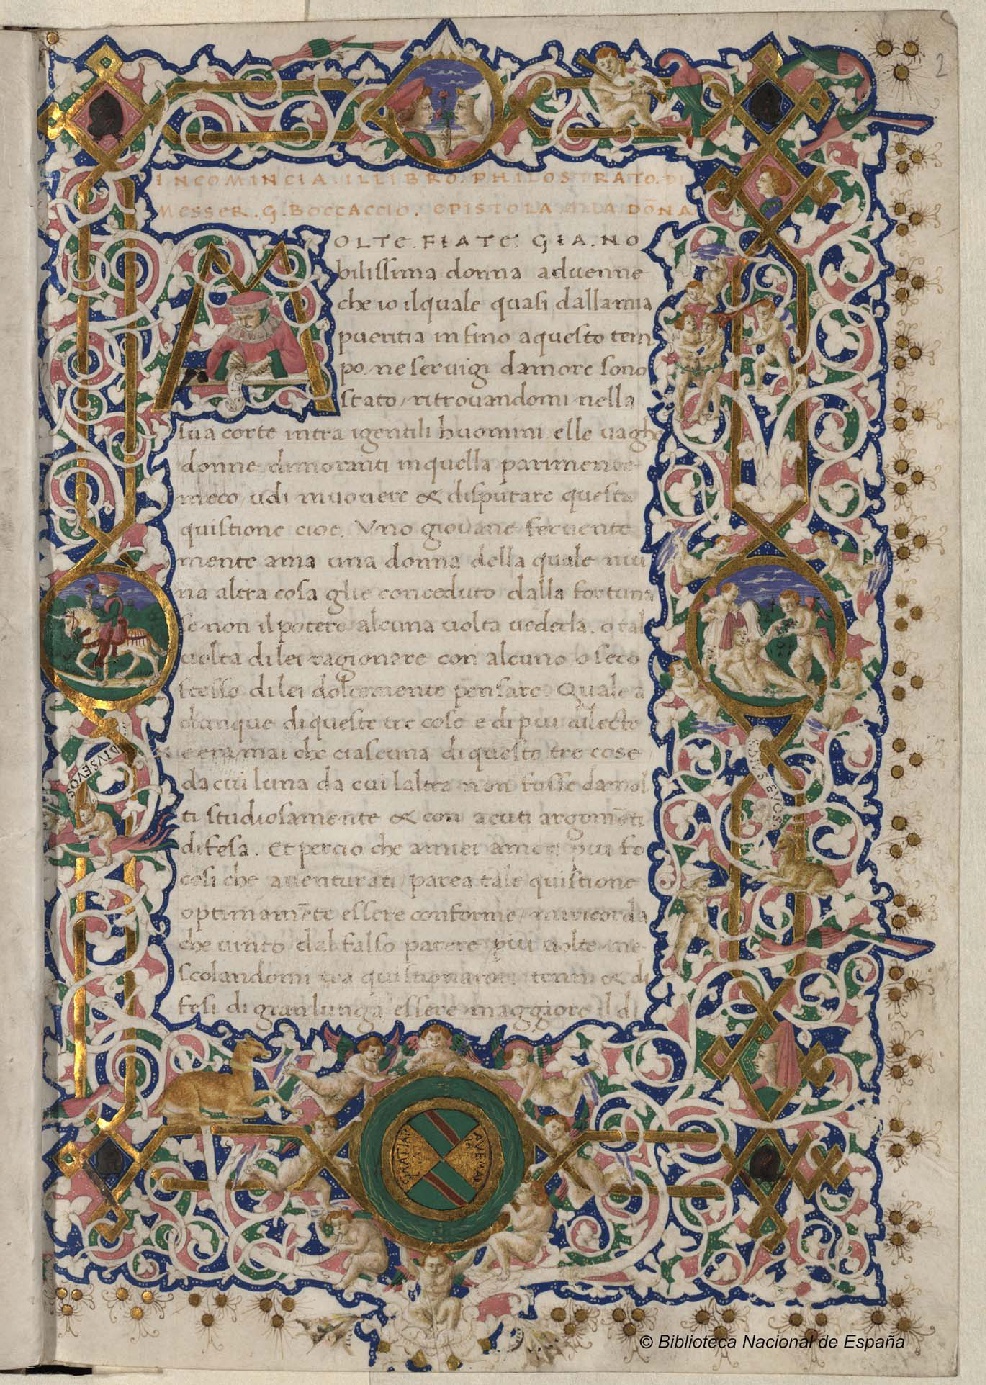 2
INCOMINCIA ILLIBRO. PHILOSTRATO. DI
MESSER. G. BOCCACCIO. EPISTOLA ALA DOÑA
MOLTE. FIATE. GIA. NO
bilissima donna aduenne
che io ilquale quasi dallamia
pueritia infino aquesto tem
po. ne seruigi damore sono
stato, ritrouandomi nella
sua corte intra igentili huomini elle uaghe
donne dimoranti inquella parimente
meco udi muouere & disputare questa
quistione cioe. Vno giouane feruente
mente ama una donna della quale niu
na altra cosa glie conceduto dalla fortuna
se non il potere alcuna uolta uederla. o tal
uolta dilei ragionare con alcuno o seco
stesso dilei dolcemente pensare. Quale a
dunque diqueste tre cose e dipiu dilecto
ne era mai che ciascuna di queste tre cose
da cui luna da cui laltra non fusse damol
ti studiosamente & con acuti argomēti
difesa. Et percio che amiei amori piu fo
cosi che auenturati parea tale quistione
optimamēte essere conforme, miricorda
che uinto dal falso parere piu uolte me
scolandomi tra quistionatori tenni & di
fesi di granlunga essere maggiore il di
© Biblioteca Nacional de España